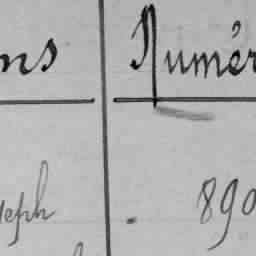 ns Numér
seph . 890